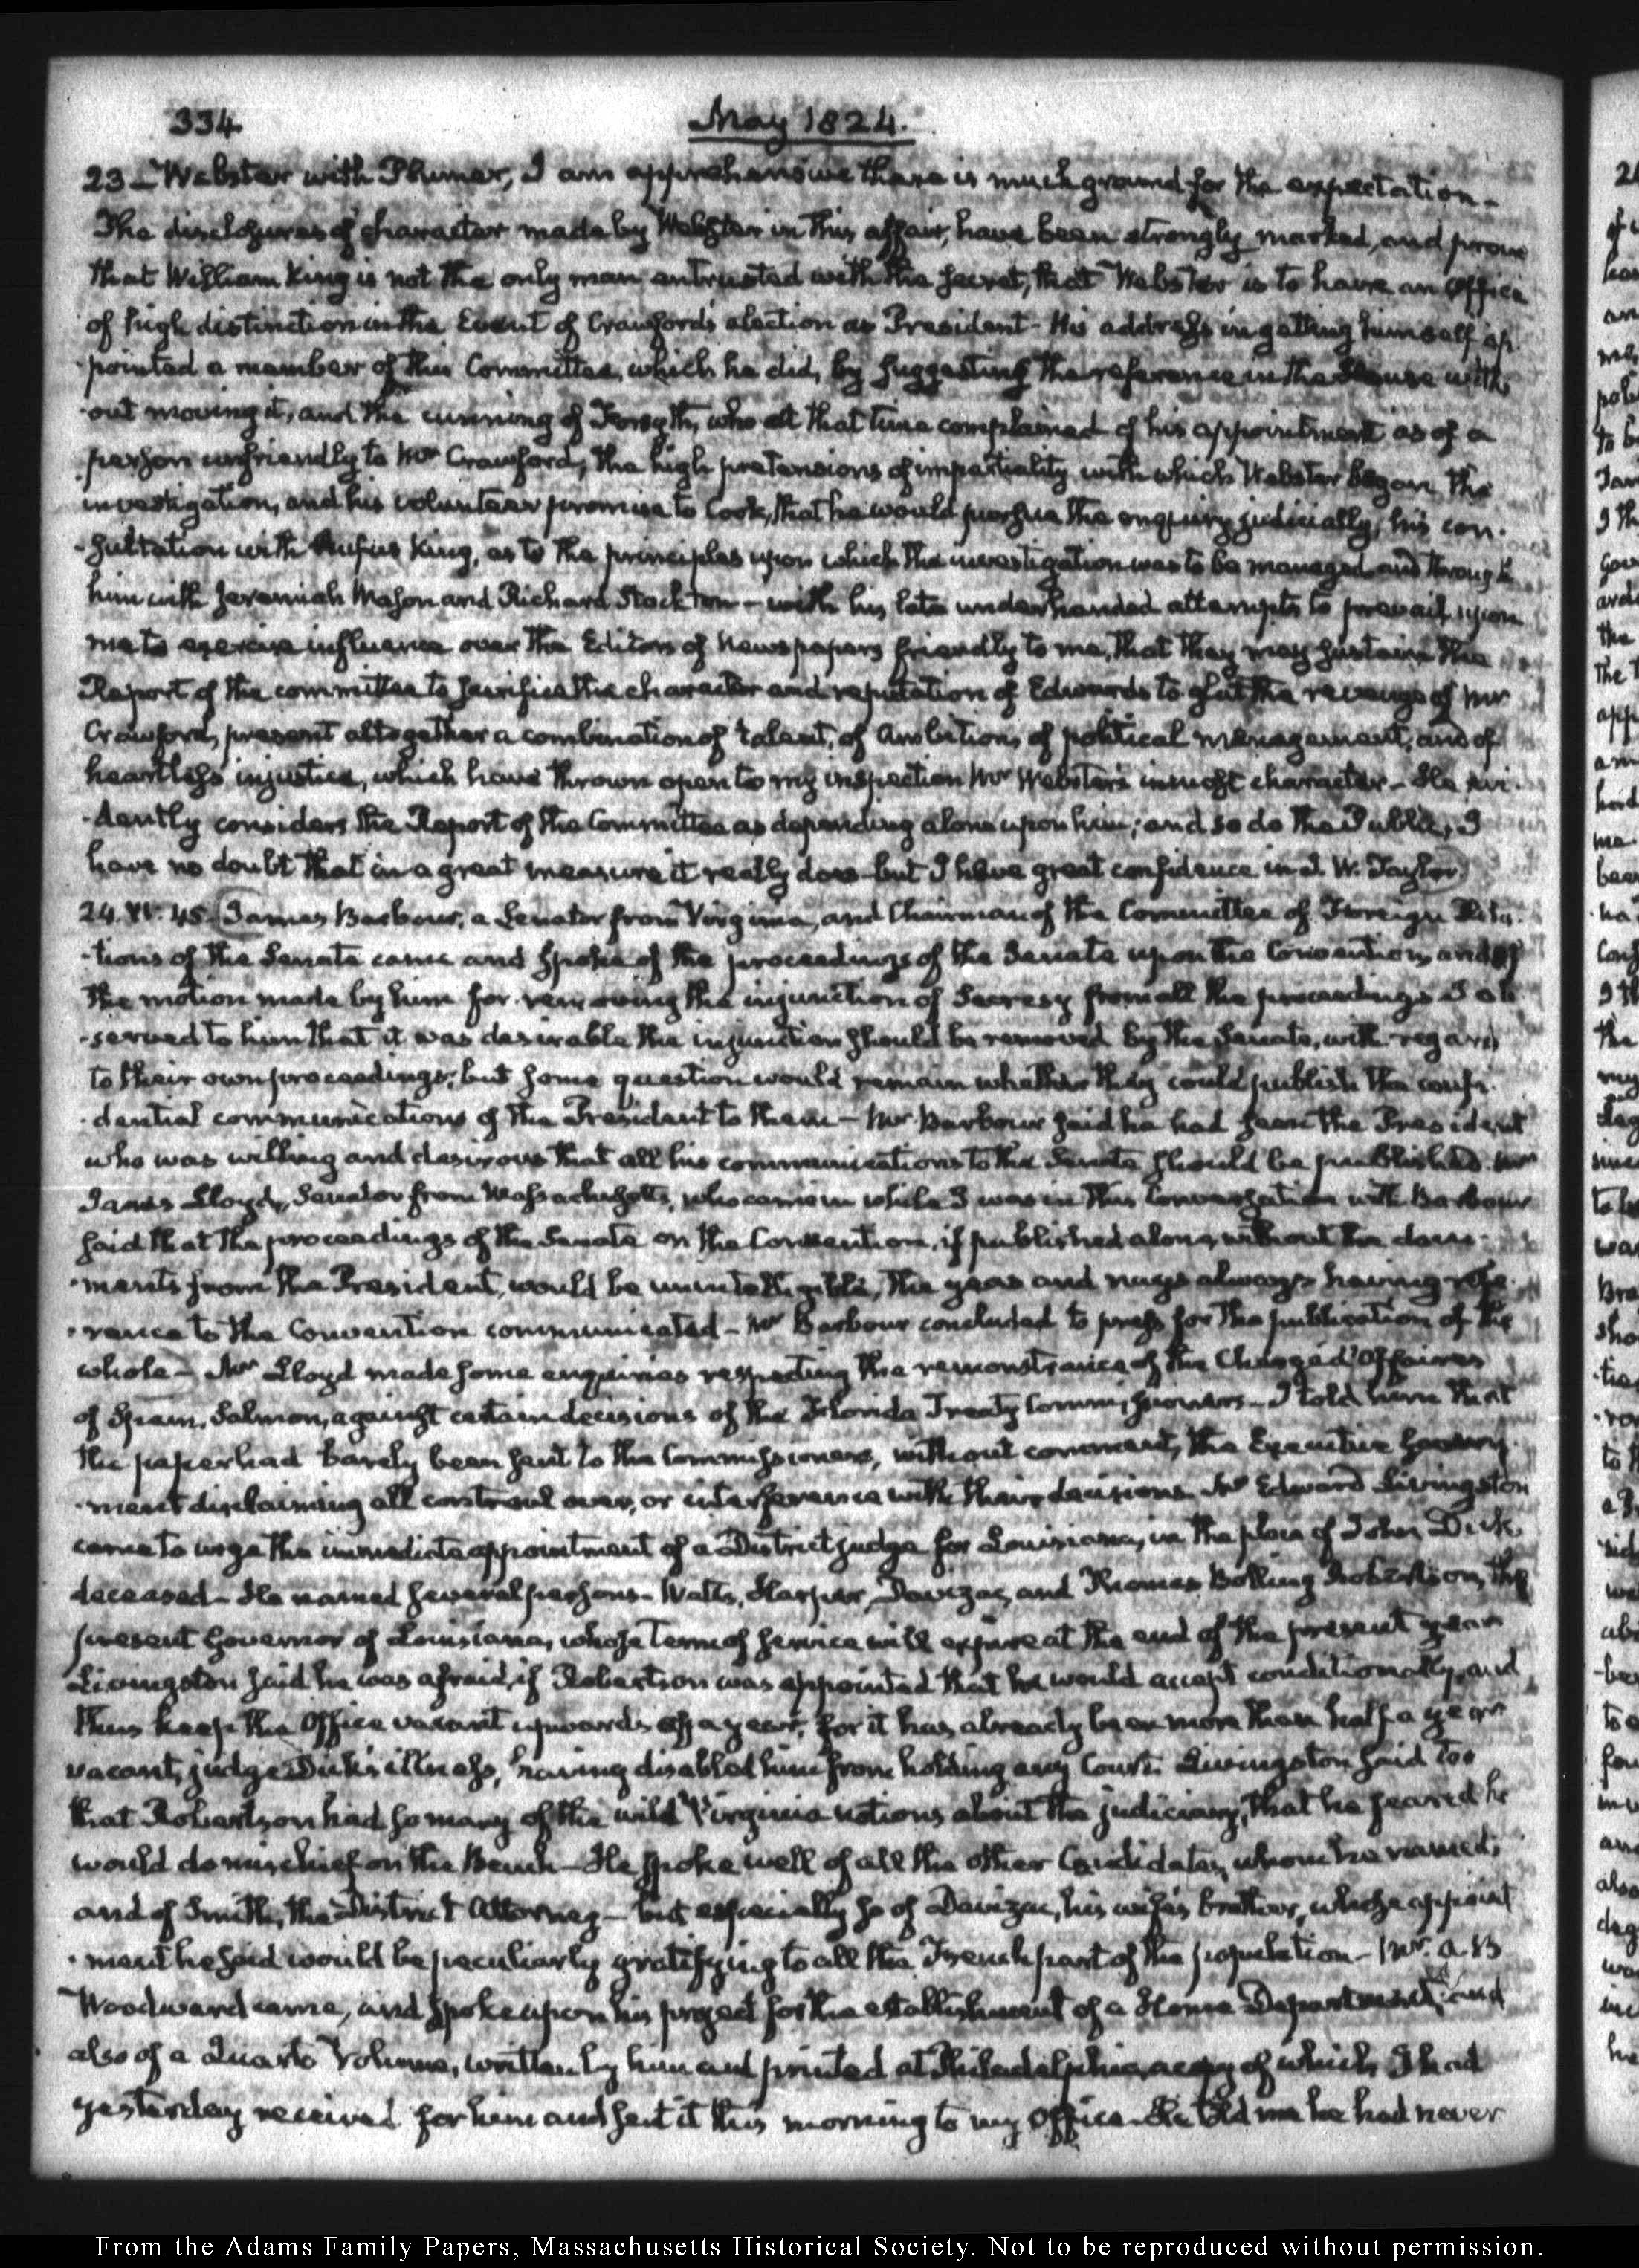 334
May 1824.
23 - Webster with Plumer, I am apprehensive there is much ground for the expectation -
The disclosures of character made by Webster in this affair, have been strongly marked, and prove
that William King is not the only man entrusted with the secret, that Webster is to have an Office
of high distinction in the Event of Crawford's election as President - His address in getting himself ap-
-pointed a member of this Committee, which he did, by suggesting the reference in the House with-
-out moving it, and the cunning of Forsyth, who at that time complained of his appointment as of a
person unfriendly to Mr Crawford; the high pretensions of impartiality with which Webster began the
investigation, and his volunteer promise to Cook, that he would pursue the enquiry judicially, his con-
-sultation with Rufus King, as to the principles upon which the investigation was to be managed and through
him with Jeremiah Mason and Richard Stockton - with his late underhanded attempts to prevail upon
me to exercise influence over the Editors of Newspapers friendly to me, that they may sustain the
Report of the committee to sacrifice the character and reputation of Edwards to glut the revenge of Mr
Crawford, present altogether a combination of talent, of Ambition, of political management, and of
heartless injustice, which have thrown open to my inspection Mr Webster's inmost character - He evi-
-dently considers the Report of the Committee as depending alone upon him; and so do the Public, I
have no doubt that in a great measure it really does - but I have great confidence in J. W. Taylor
24. IV. 45. James Barbour, a Senator from Virginia, and Chairman of the Committee of Foreign Rela-
-tions of the Senate came and spoke of the proceedings of the Senate upon the Convention, and of
the motion made by him for removing the injunction of Secresy from all the proceedings I ob-
-served to him that it was desirable the injunction should be removed by the Senate, with regard
to their own proceedings; but some question would remain whether they could publish the confi-
-dential communications of the President to them - Mr Barbour said he had seen the President
who was willing and desirous that all his communications to the Senate should be published. Mr
James Lloyd, Senator from Massachusetts, who came in while I was in this Conversation with Barbour
said that the proceedings of the Senate on the Convention, if published alone, without the docu-
-ments from the President, would be unintelligible, the yeas and nays always having refe-
-rence to the Convention communicated - Mr Barbour concluded to press for the publication of the
whole - Mr Lloyd made some enquiries respecting the remonstrance of the Chargé d'Affaires
of Spain, Salmon, against certain decisions of the Florida Treaty Commissioners - I told him that
the paper had barely been sent to the Commissioners, without comment, the Executive Govern-
-ment disclaiming all controul over, or interference with their decisions. Mr Edward Livingston
came to urge the immediate appointment of a District judge for Louisiana, in the place of John Dick
deceased - He named several persons - Watts, Harper, Davezac, and Thomas Bolling Robertson, the
present Governor of Louisiana, whose term of service will expire at the end of the present year
Livingston said he was afraid, if Robertson was appointed that he would accept conditionally, and
thus keep the Office vacant upwards of a year, for it has already been more than half a year
vacant, judge Dick's illness, having disabled him from holding any Court. Livingston said too
that Robertson had so many of the wild Virginia notions about the judiciary, that he feared he
would do mischief on the Bench - He spoke well of all the other Candidates, whom he named;
and of Smith, the District Attorney - but especially so of Davizac, his wife's brother, whose appoint
-ment he said would be peculiarly gratifying to all the French part of the population - Mr A. B
Woodward came, and spoke upon his project for the establishment of a Home Department; and
also of a Quarto Volume, written by him and printed at Philadelphia, a copy of which I had
yesterday received for him and sent it this morning to my Office - He told me he had never
From the Adams Family Papers, Massachusetts Historical Society. Not to be reproduced without permission.